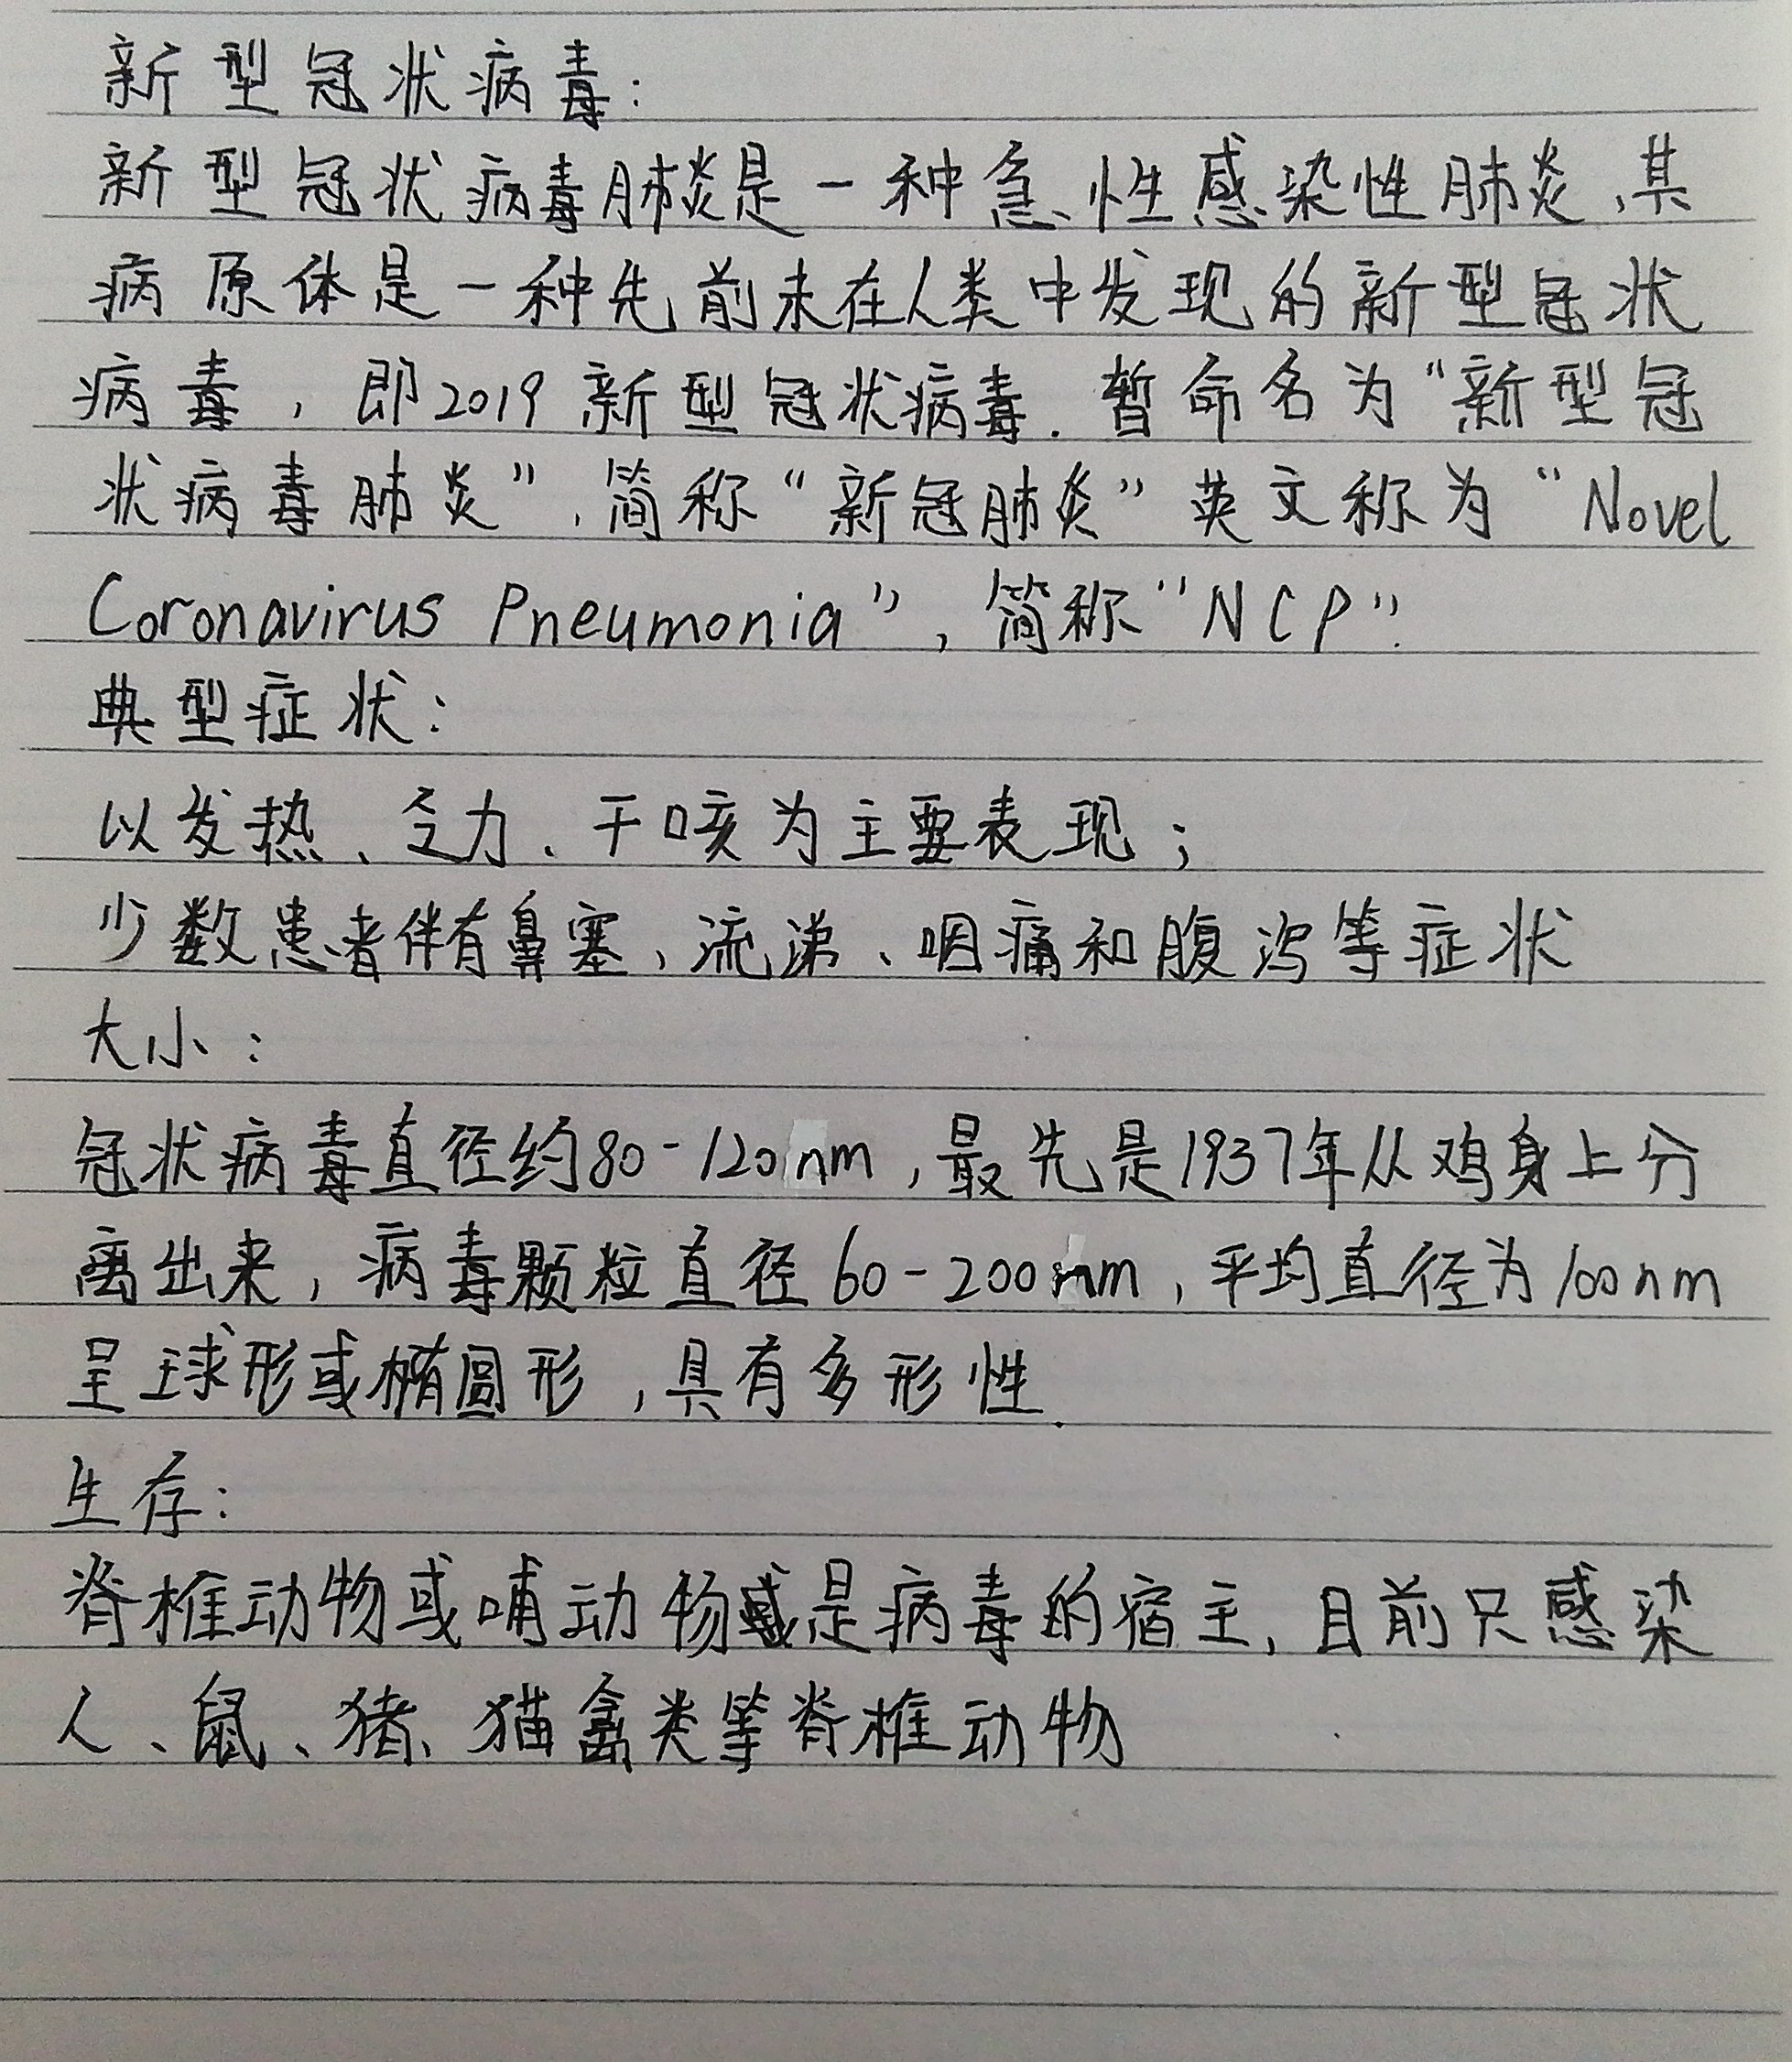 新型冠状病毒:
新型冠状病毒肺炎是一种急性感染性肺炎,其
病原体是一种先前未在人类中发现的新型冠状
病毒,即2019新型冠状病毒.暂命名为“新型冠
状病毒肺炎”,简称“新冠肺炎”英文称为“Novel
Coronavirus Pneumonia”,简称“NCP”.
典型症状:
以发热、乏力、干咳为主要表现;
少数患者伴有鼻塞、流涕、咽痛和腹泻等症状
大小:
冠状病毒直径约80-120nm,最先是1937年从鸡身上分
离出来,病毒颗粒直径60-200nm,平均直径为100nm
呈球形或椭圆形,具有多形性.
生存:
脊椎动物或哺动物是病毒的宿主,目前只感染
人、鼠、猪、猫禽类等脊椎动物